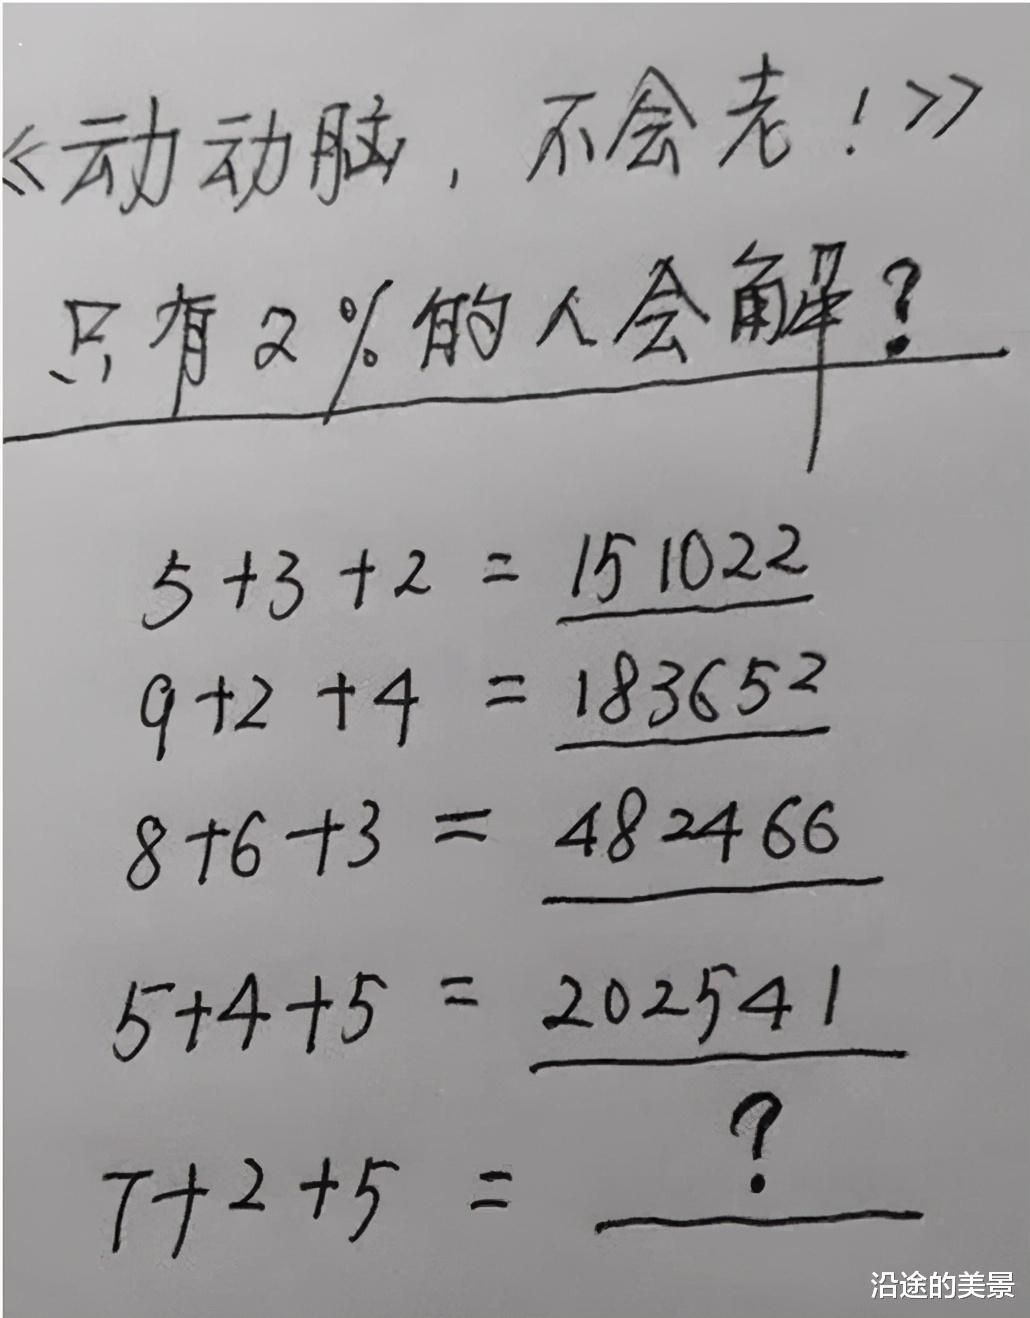 《动动脑，不会老！》
只有2%的人会解？
5+3+2=151022
9+2+4=183652
8+6+3=482466
5+4+5=202541
7+2+5=?
沿途的美景